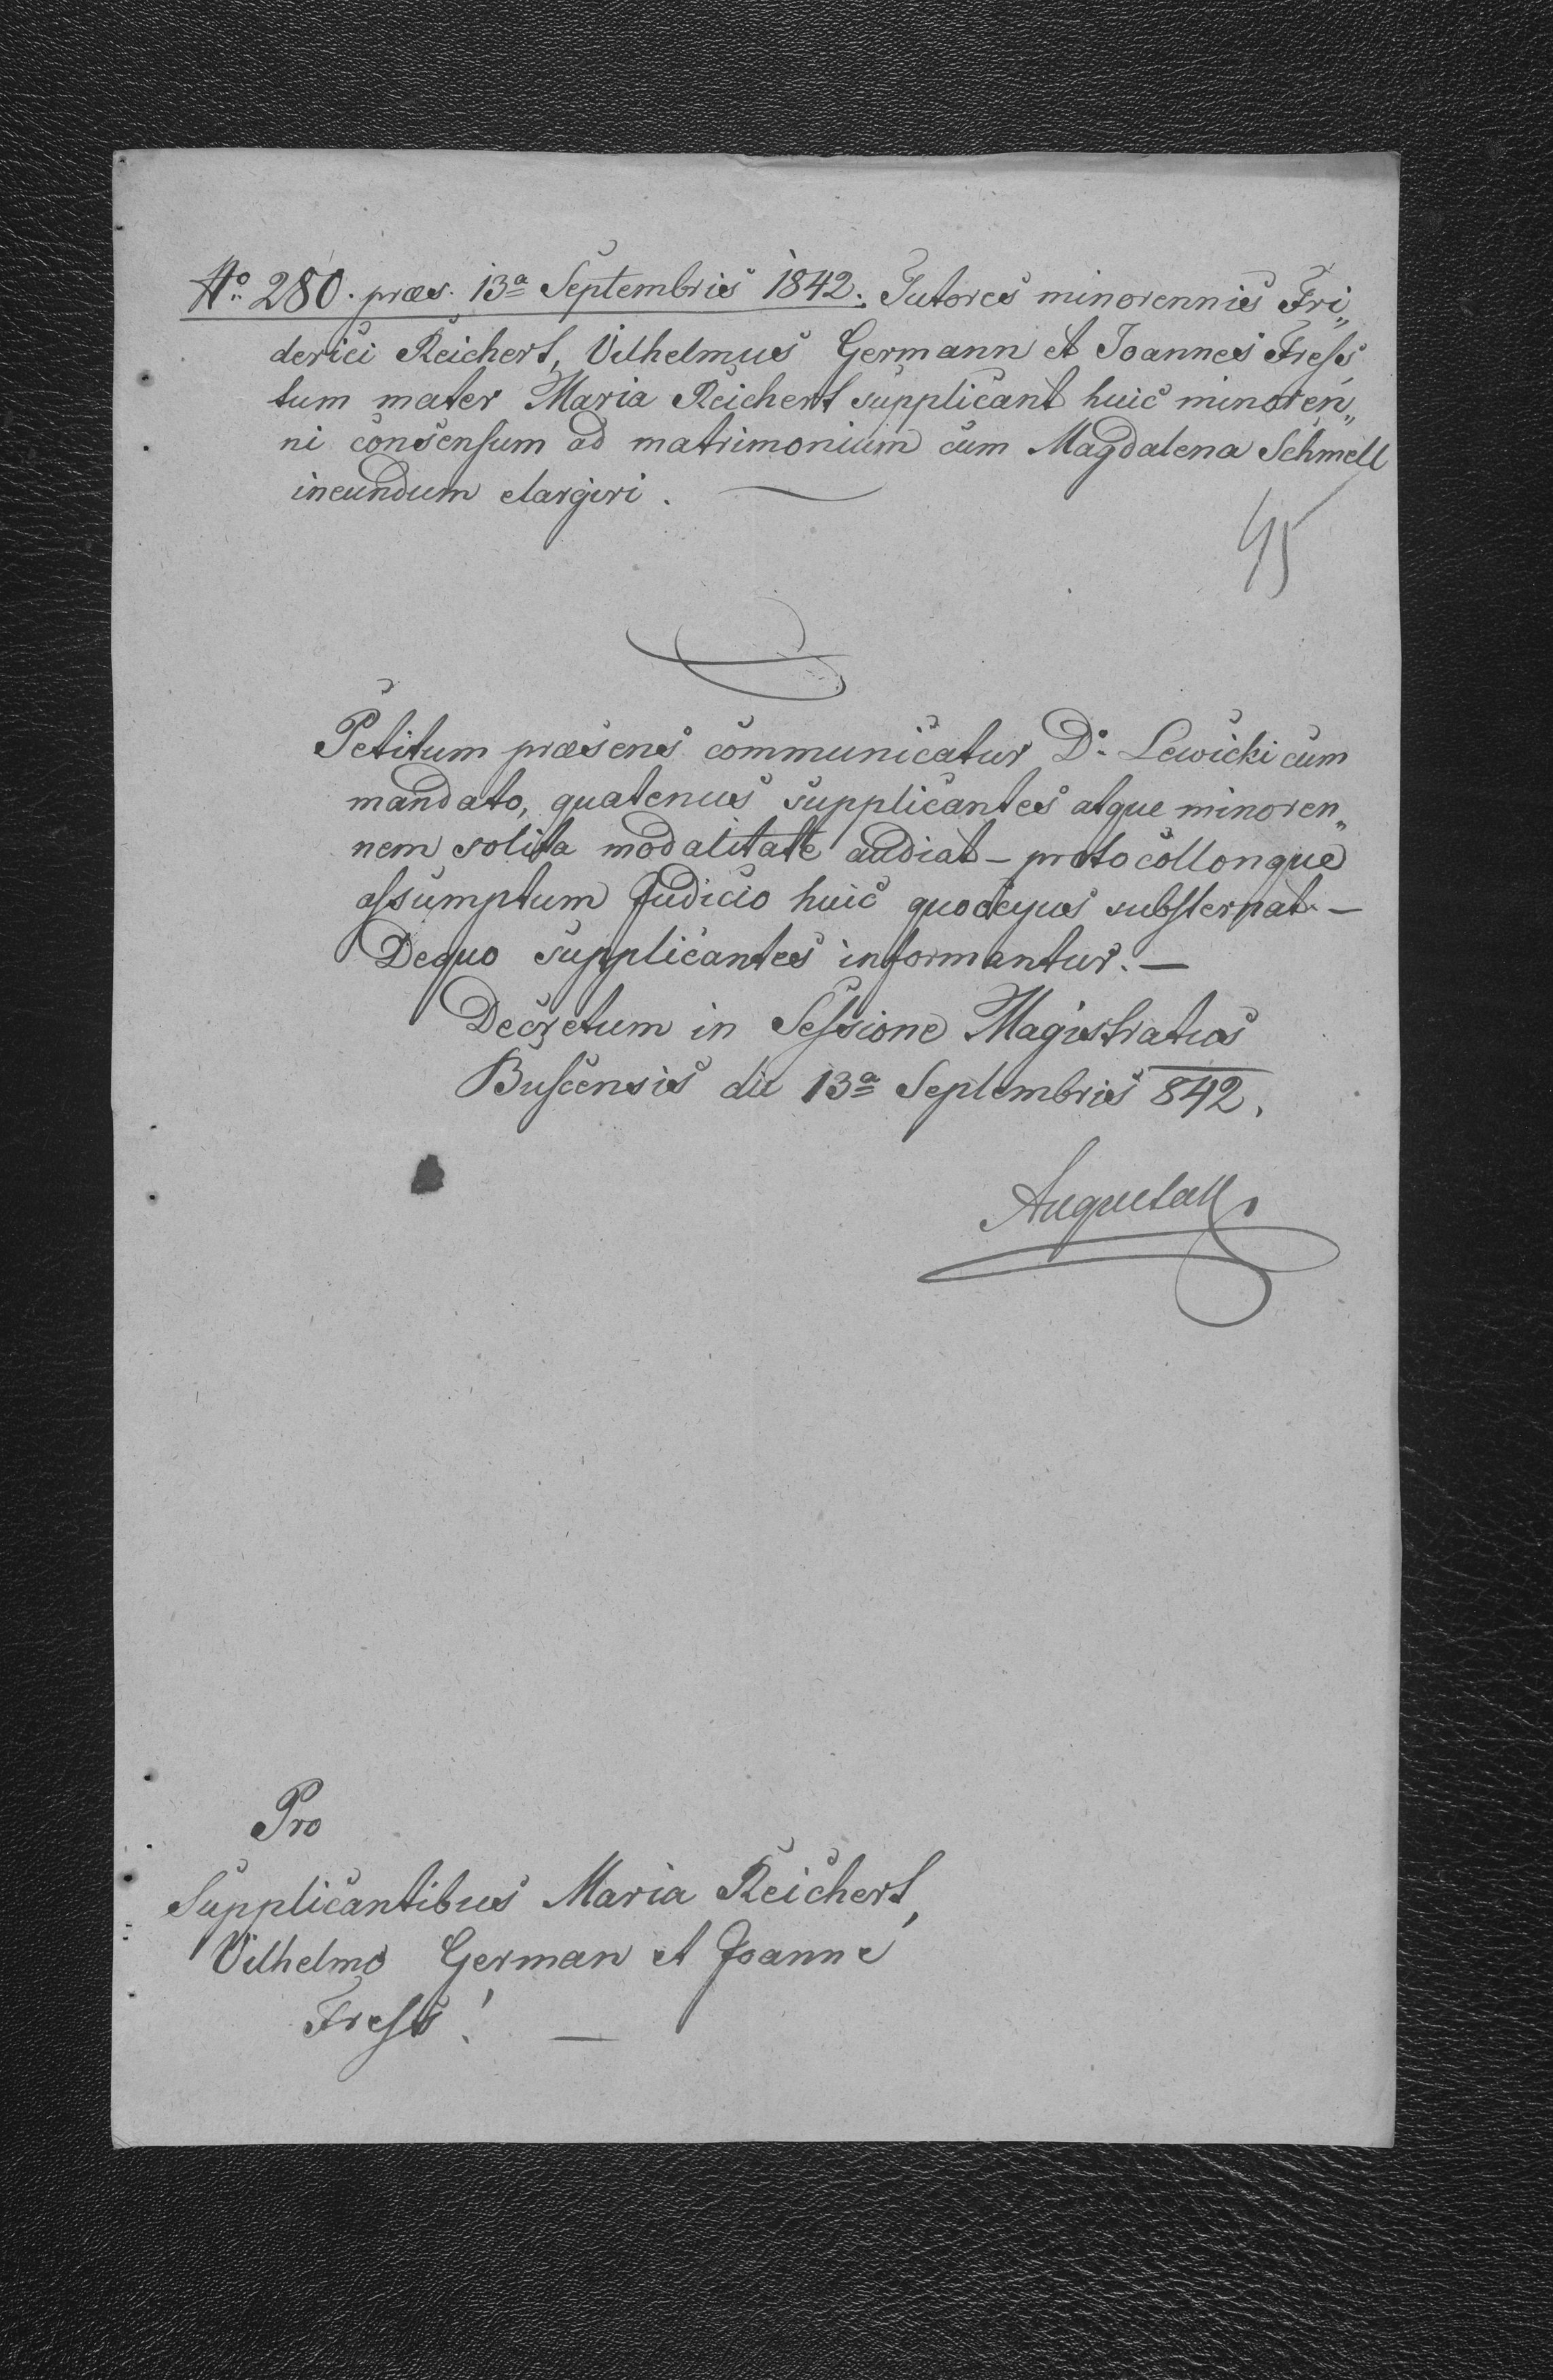 No. 280. præs. 13a Septembris 1842. Tutores minorennis Fri„
derici Reichert, Vilhelmus Germann et Joannes Fress
tum mater Maria Reichert supplicant huic minoren„
ni consensum ad matrimonium cum Magdalena Schmell
ineundum elargiri.
45
Petitum præsens communicatur Do. Lewicki cum
mandato, quatenus supplicantes atque minoren„
nem solita modalitate audiat – protocollonque
assumptum Judicio huic quocyus substernat –
Dequo supplicantes informantur. –
Decretum in Sessione Magistratus
Buscensis die 13a Septembris 842.
Pro
Supplicantibus Maria Reichert,
Vilhelmo German et Joanne
Fress! –